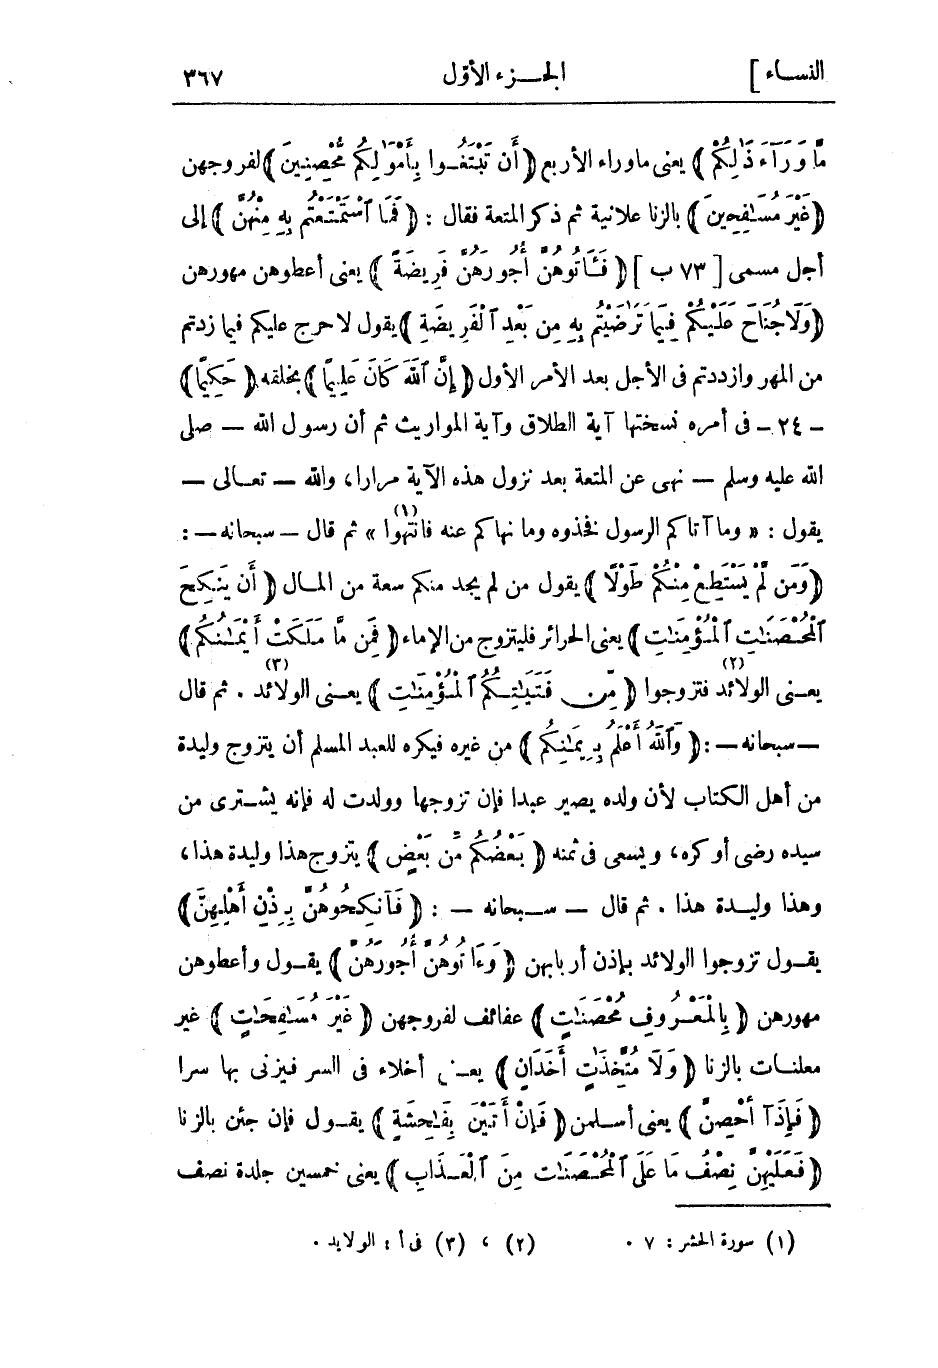 النساء ]
الجــزء الأول
٣٦٧
مَّا وَرَآءَ ذَٰلِكُمْ ﴾ يعنى ماوراء الأربع ﴿ أَن تَبْتَغُــوا بِأَمْوَٰلِكُم مُّحْصِنِينَ ﴾ لفروجهن
﴿ غَيْرَ مُسَـٰفِحِينَ ﴾ بالزنا علانية ثم ذكر المتعة فقال : ﴿ فَمَا ٱسْتَمْتَعْتُم بِهِ مِنْهُنَّ ﴾ إلى
أجل مسمى [ ٧٣ ب ] ﴿ فَـَٔاتُوهُنَّ أُجُورَهُنَّ فَرِيضَةً ﴾ يعنى أعطوهن مهورهن
﴿ وَلَا جُنَاحَ عَلَيْكُمْ فِيمَا تَرَٰضَيْتُم بِهِ مِن بَعْدِ ٱلْفَرِيضَةِ ﴾ يقول لا حرج عليكم فيما زدتم
من المهر وازددتم فى الأجل بعد الأمر الأول ﴿ إِنَّ ٱللَّهَ كَانَ عَلِيمًا ﴾ بخلقه ﴿ حَكِيمًا ﴾
– ٢٤ – فى أمره نسختها آية الطلاق وآية المواريث ثم أن رسول الله — صلى
الله عليه وسلم — نهى عن المتعة بعد نزول هذه الآية مرارا، والله — تعــالى —
يقول : « وما آتاكم الرسول فخذوه وما نهاكم عنه فانتهوا (١) » ثم قال — سبحانه — :
﴿ وَمَن لَّمْ يَسْتَطِعْ مِنكُمْ طَوْلًا ﴾ يقول من لم يجد منكم سعة من المــال ﴿ أَن يَنكِحَ
ٱلْمُحْصَنَـٰتِ ٱلْمُؤْمِنَـٰتِ ﴾ يعنى الحرائر فليتزوج من الإماء ﴿ فَمِن مَّا مَلَكَتْ أَيْمَـٰنُكُم ﴾
يعــنى الولائد (٢) فتزوجوا ﴿ مِّن فَتَيَـٰتِكُمُ ٱلْمُؤْمِنَـٰتِ ﴾ يعــنى الولائد (٣) . ثم قال
— سبحانه — : ﴿ وَٱللَّهُ أَعْلَمُ بِإِيمَـٰنِكُم ﴾ من غيره فيكره للعبد المسلم أن يتزوج وليدة
من أهل الكتاب لأن ولده يصير عبدا فإن تزوجها وولدت له فإنه يشــترى من
سيده رضى أو كره، ويسعى فى ثمنه ﴿ بَعْضُكُم مِّن بَعْضٍ ﴾ يتزوج هذا وليدة هذا،
وهذا وليــدة هذا . ثم قال — ســبحانه — : ﴿ فَٱنكِحُوهُنَّ بِإِذْنِ أَهْلِهِنَّ ﴾
يقــول تزوجوا الولائد بإذن أربابهن ﴿ وَءَاتُوهُنَّ أُجُورَهُنَّ ﴾ يقــول وأعطوهن
مهورهن ﴿ بِالْمَعْــرُوفِ مُحْصَنَـٰتٍ ﴾ عفائف لفروجهن ﴿ غَيْرَ مُسَـٰفِحَـٰتٍ ﴾ غير
معلنــات بالزنا ﴿ وَلَا مُتَّخِذَٰتِ أَخْدَانٍ ﴾ يعــنى أخلاء فى السر فيزنى بها سرا
﴿ فَإِذَآ أُحْصِنَّ ﴾ يعنى أســلمن ﴿ فَإِنْ أَتَيْنَ بِفَـٰحِشَةٍ ﴾ يقــول فإن جئن بالزنا
﴿ فَعَلَيْهِنَّ نِصْفُ مَا عَلَى ٱلْمُحْصَنَـٰتِ مِنَ ٱلْعَــذَابِ ﴾ يعنى خمسين جلدة نصف
(١) سورة الحشر : ٧ .
(٢) ، (٣) فى أ : الولايد .